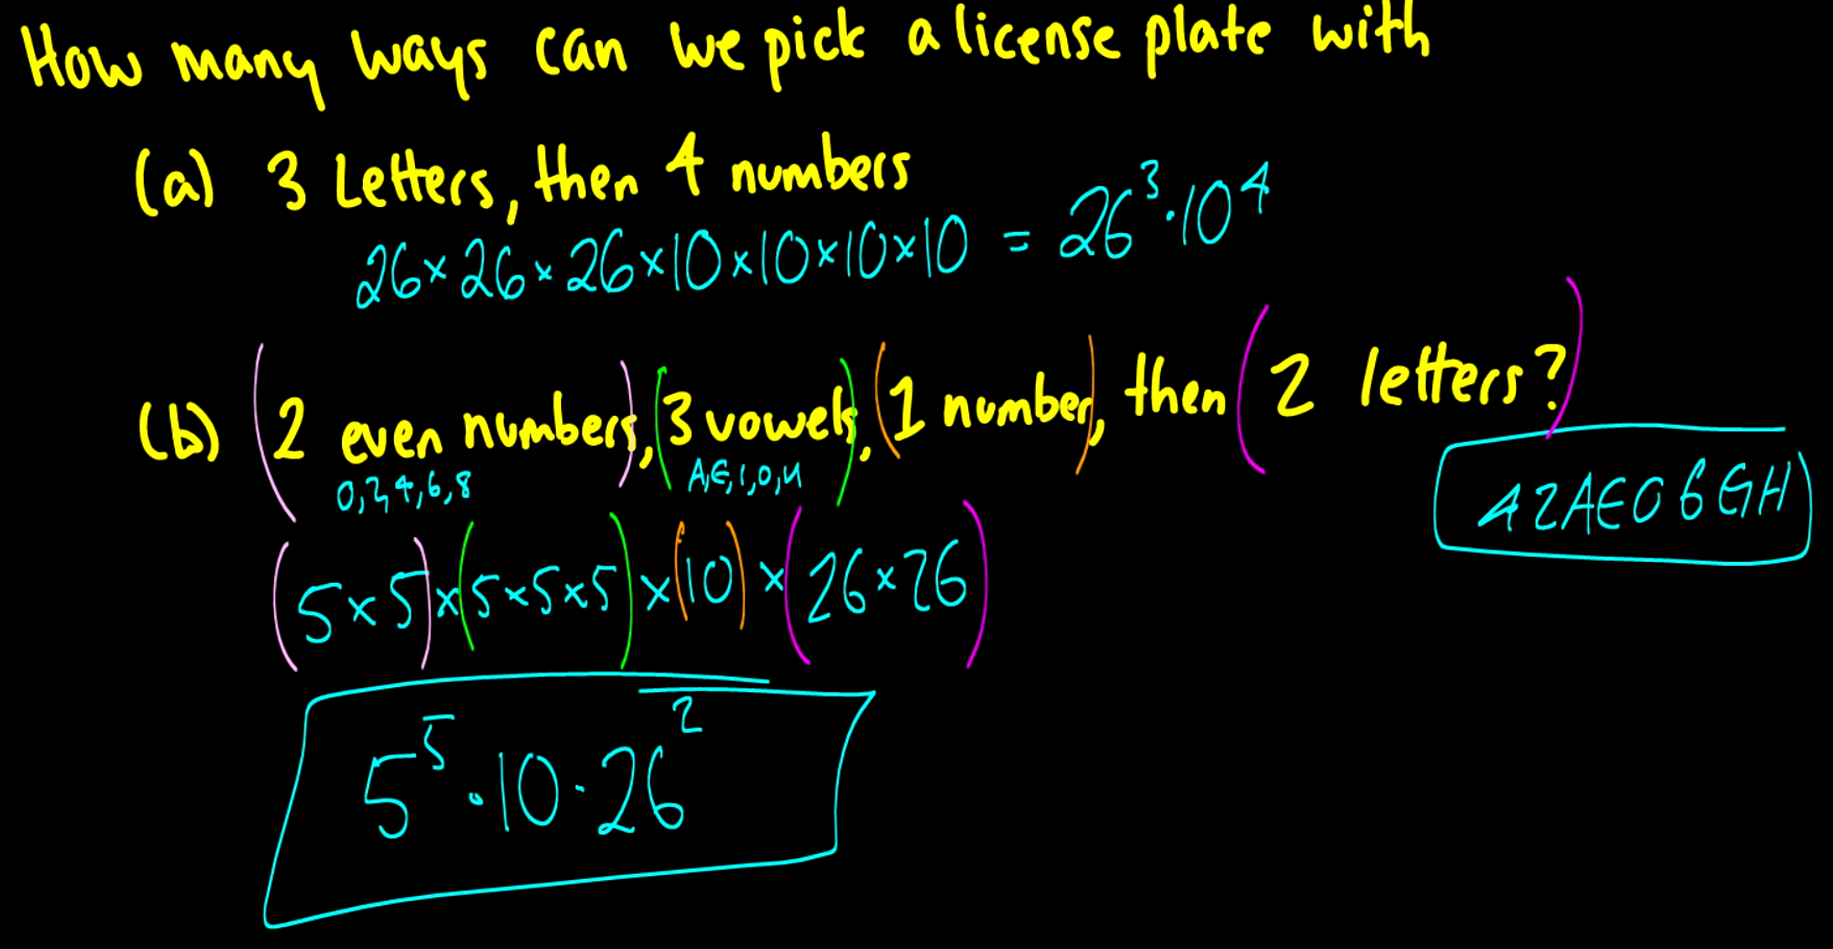 How many ways can we pick a license plate with
(a) 3 Letters, then 4 numbers
26×26×26×10×10×10×10 = 26³·10⁴
(b) (2 even numbers), (3 vowels), (1 number), then (2 letters?)
0,2,4,6,8 A,E,I,O,U
(5×5)×(5×5×5)×(10)×(26×26)
42AEO6GH
5⁵·10·26²